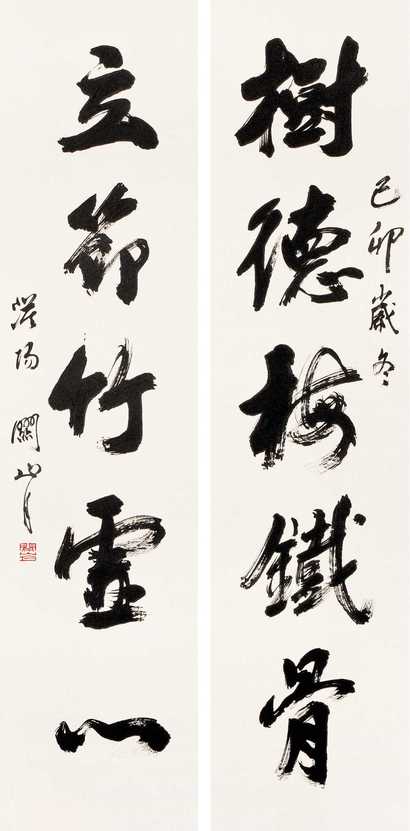 樹德梅鐵骨
己卯歲冬
立節竹虛心
漠陽關山月